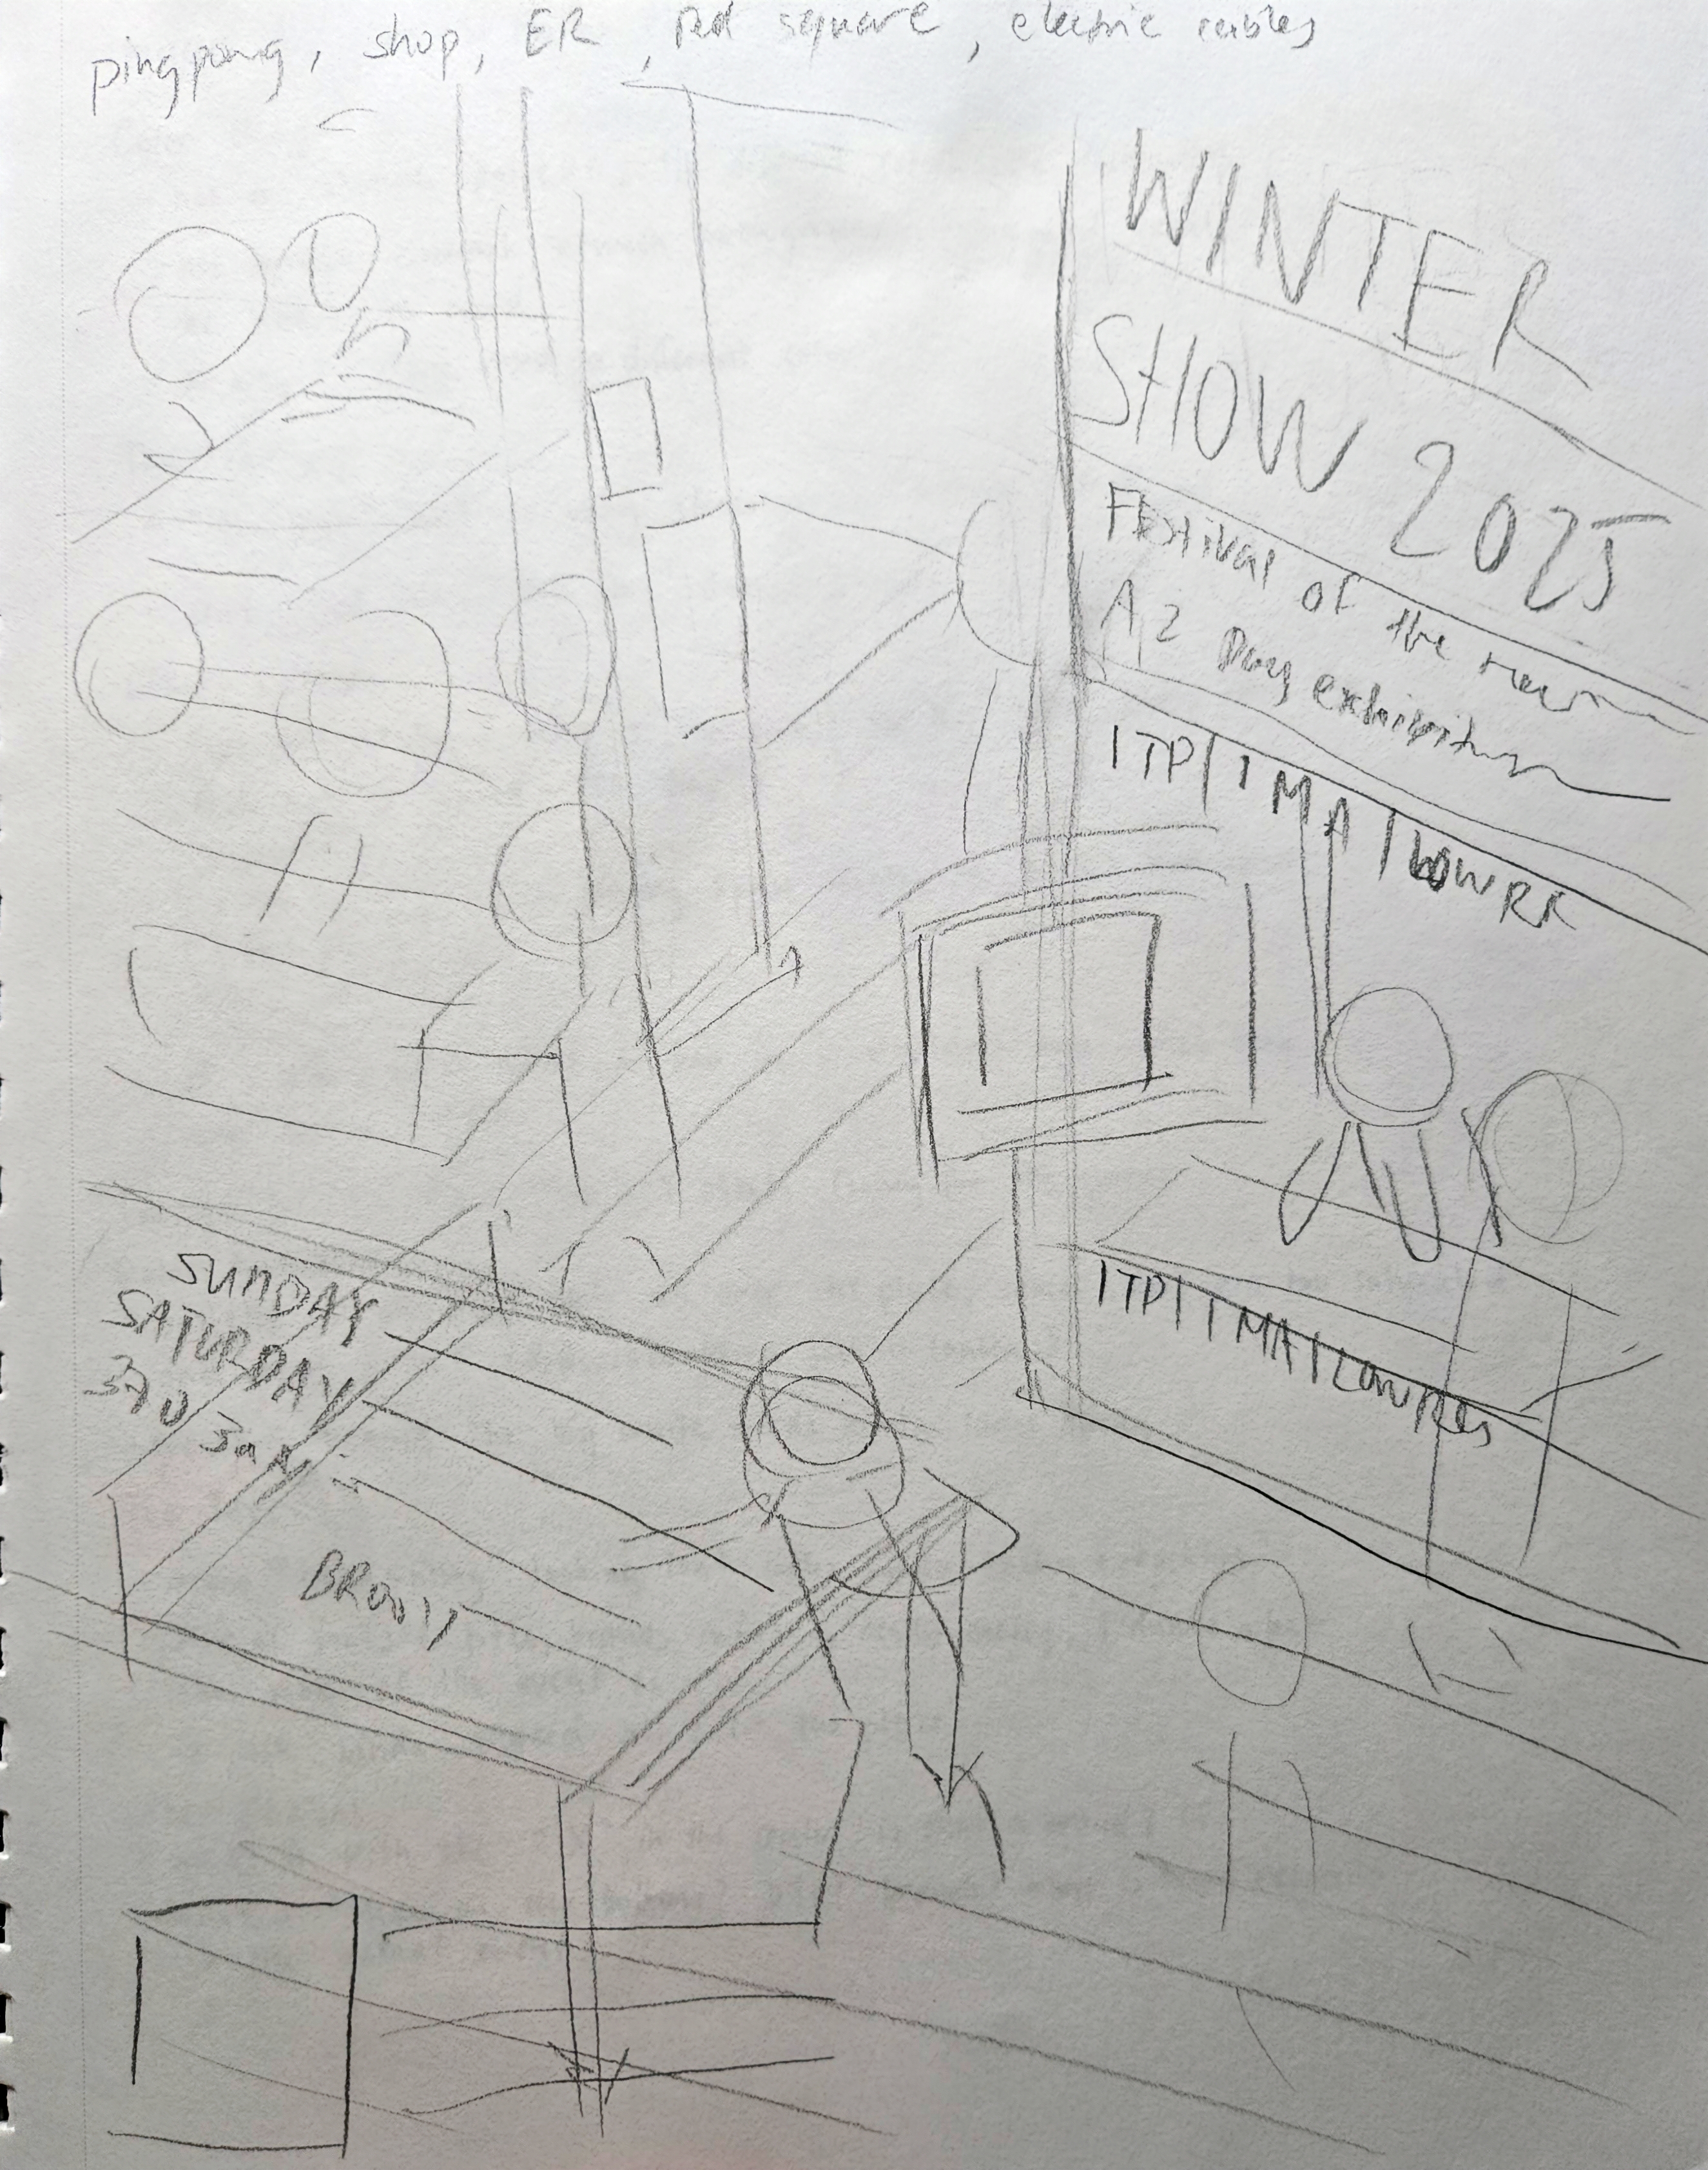 pingpong, shop, ER, red square, electric cables
WINTER
SHOW 2025
Festival of the new
A 2 Day exhibition
ITP/IMA/LOWRE
ITP/IMA/LowRes
SUNDAY
SATURDAY
370